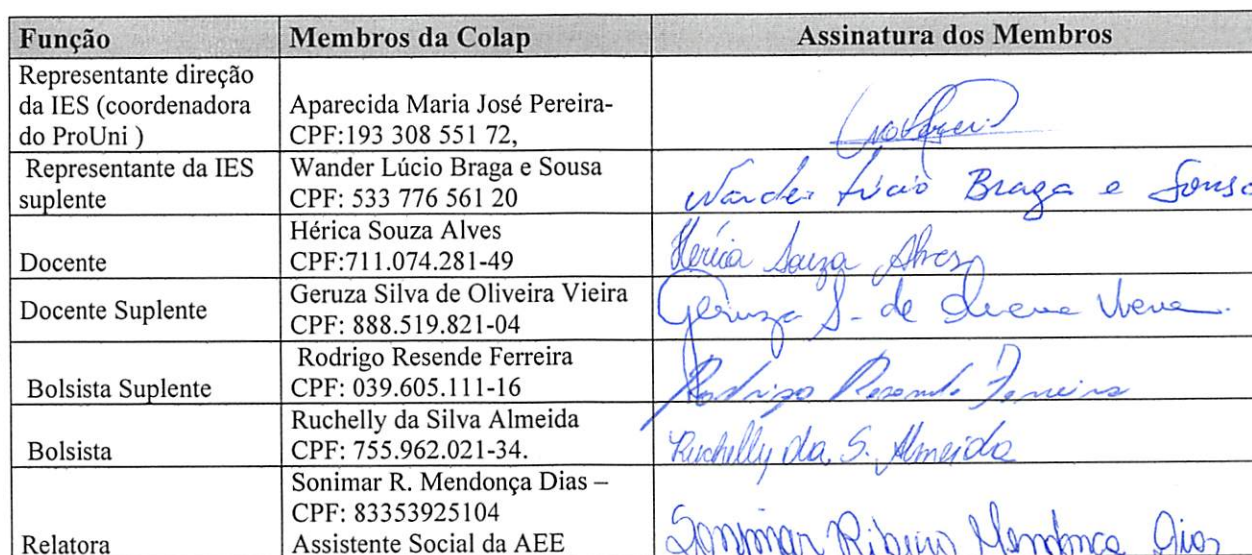 Função Membros da Colap Assinatura dos Membros
Representante direção
da IES (coordenadora
do ProUni )
Aparecida Maria José Pereira-
CPF:193 308 551 72,
Representante da IES
suplente
Wander Lúcio Braga e Sousa
CPF: 533 776 561 20
Wander Lúcio Braga e Sousa
Docente
Hérica Souza Alves
CPF:711.074.281-49
Hérica Souza Alves
Docente Suplente
Geruza Silva de Oliveira Vieira
CPF: 888.519.821-04
Geruza S. de Oliveira Vieira.
Bolsista Suplente
Rodrigo Resende Ferreira
CPF: 039.605.111-16
Rodrigo Resende Ferreira
Bolsista
Ruchelly da Silva Almeida
CPF: 755.962.021-34.
Ruchelly da S. Almeida
Relatora
Sonimar R. Mendonça Dias –
CPF: 83353925104
Assistente Social da AEE
Sonimar Ribeiro Mendonça Dias